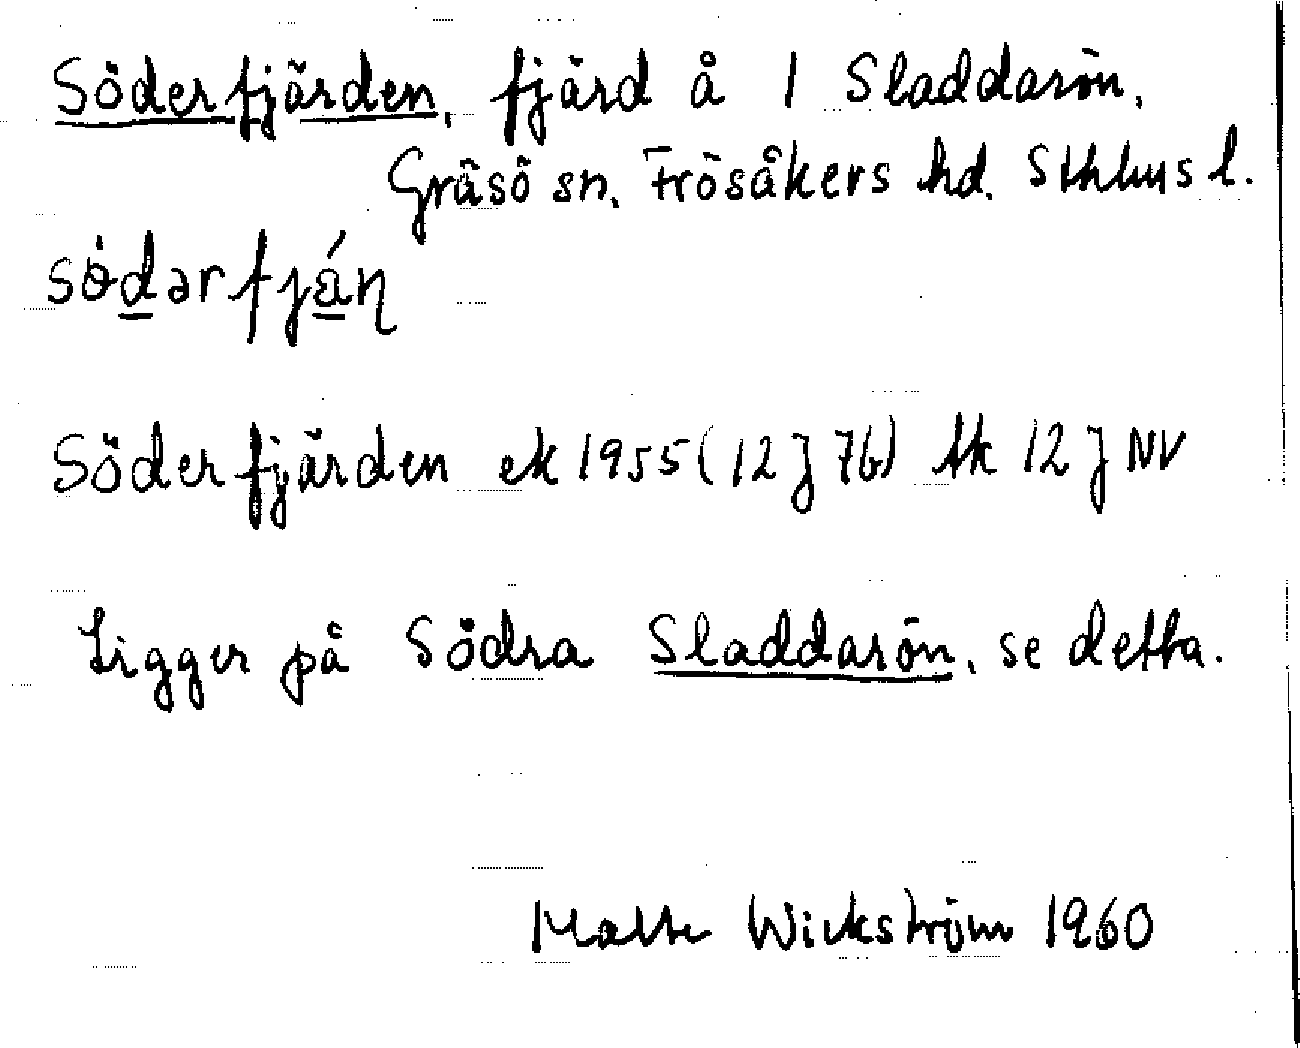 Söderfjärden, fjärd å 1 Sladdarön,
Gräsö sn. Frösåkers hd. Sthlms l.
södərfjáɳ
Söderfjärden ek 1955 (12 J 7b) tk 12 J NV
Ligger på Södra Sladdarön, se detta.
Malte Wickström 1960